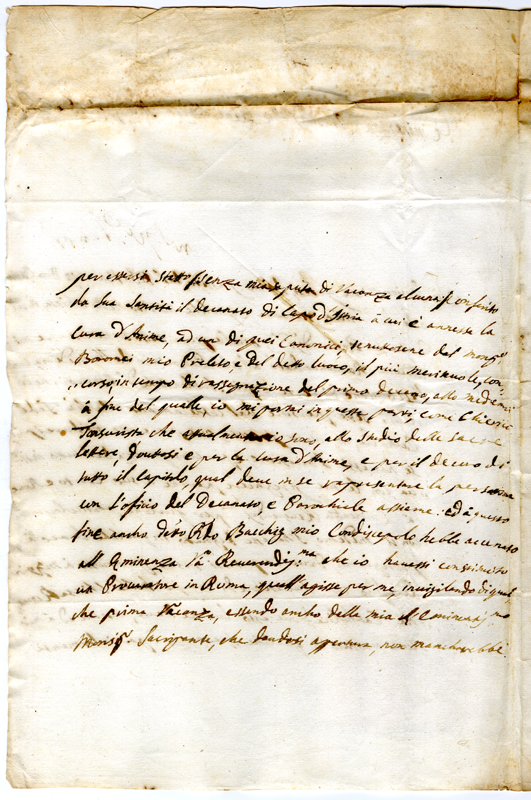 per essersi stato senza mia saputa di Vacanza alcuna conferito
da Sua Santità il decanato di Capo d'Istria à cui è annessa la
cura d'Anime, ad un di quei Canonici, tenutosene dal
mio Prelato, e del detto luoco, il più meritevole, con
corso, in tempo di rassegnazione del primo decano, allo
à fine del quale, io mi in queste parti, come Chierico
Tonsurista che attualmente io sono, allo studio delle Sacre
lettere, e per la cura d'Anime, e per il decoro di
tutto il capitolo qual deve in se rapresentare la persona
con l'oficio del Decanato, e Parochiale assieme. ed à questo
fine ancho detto Mio Condiscepolo hebbe accenato
all' Eminenza V.ra Reverendiss.ma che io havessi constituito
un Procuratore in Roma, qual agisse per me invigilando di
che prima Vacanza, essendo ancho della mia
Monsig.r Sacripante, che dandosi apertura, non mancharebbe